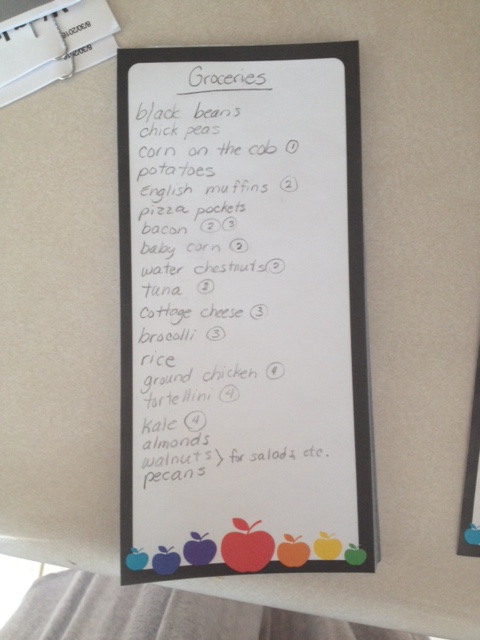 Groceries
black beans
chick peas
corn on the cob ①
potatoes
english muffins ②
pizza pockets
bacon ② ③
baby corn ②
water chestnuts ②
tuna ②
cottage cheese ③
brocolli ③
rice
ground chicken ④
tortellini ④
kale ④
almonds
walnuts > for salads, etc.
pecans